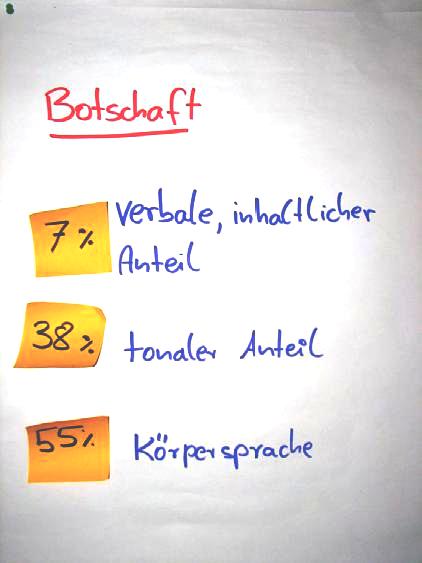 Botschaft
7% verbale, inhaltlicher
Anteil
38% tonaler Anteil
55% Körpersprache